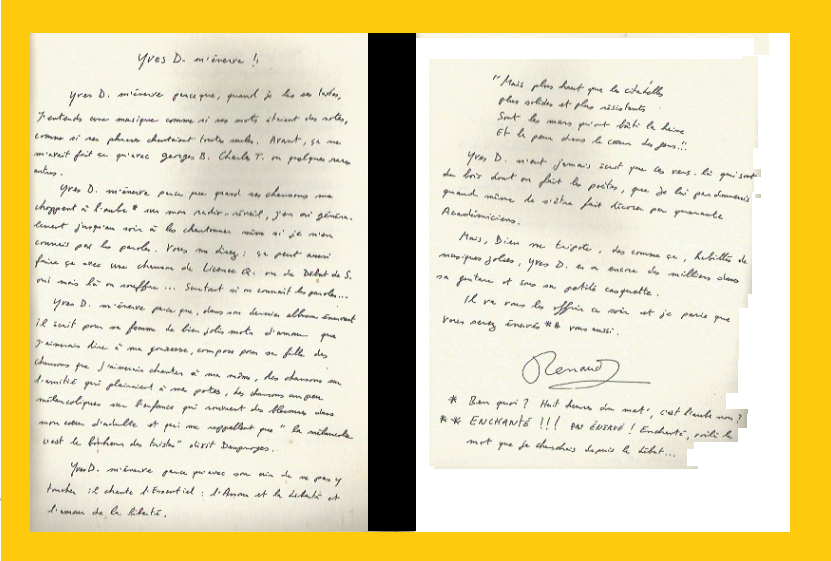 Yves D. m'énerve !!
Yves D. m'énerve parce que, quand je lis ses textes,
J'entends une musique comme si ses mots étaient des notes,
comme si ses phrases chantaient toutes seules. Avant, ça ne
m'avait fait ça qu'avec Georges B. Charles T. ou quelques rares
autres.
Yves D. m'énerve parce que quand ses chansons me
choppent à l'aube * sur mon radio-réveil, j'en ai généra-
lement jusqu'au soir à les chantonner même si je n'en
connais pas les paroles. Vous me direz : ça peut aussi
faire ça avec une chanson de Licence Q. ou de Début de S.
oui mais là on souffre... Surtout si on connaît les paroles...
Yves D. m'énerve parce que, dans son dernier album énervant
il écrit pour sa femme de bien jolis mots d'amour que
j'aimerais dire à ma gonzesse, compose pour sa fille des
chansons que j'aimerais chanter à la même, des chansons sur
l'amitié qui plairaient à mes potes, des chansons un peu
mélancoliques sur l'enfance qui rouvrent des blessures dans
mon cœur d'adulte et qui me rappellent que "la mélancolie
c'est le bonheur des tristes" disait
Yves D. m'énerve parce qu'avec son air de ne pas y
toucher il chante l'Essentiel : l'Amour et la Liberté et
l'amour de la liberté.
"Mais plus haut que les citadelles
plus solides et plus résistants
Sont les murs qu'ont bâti la haine
Et la peur dans le cœur des gens !!
Yves D. n'eut jamais écrit que ces vers-là qui sont
du bois dont on fait les poètes, que je lui pardonnerais
quand même de s'être fait décorer par quarante
Académiciens.
Mais, Dieu me tripote, des comme ça, habillés de
musiques jolies, Yves D. en a encore des milliers dans
sa guitare et sous sa petite casquette.
Il va vous les offrir ce soir et je parie que
vous serez énervés ** vous aussi.
Renaud
* Ben quoi ? Huit heures du mat', c'est l'aube non ?
** ENCHANTÉ !!! PAS ÉNERVÉ ! Enchanté, voilà le
mot que je cherchais depuis le début...